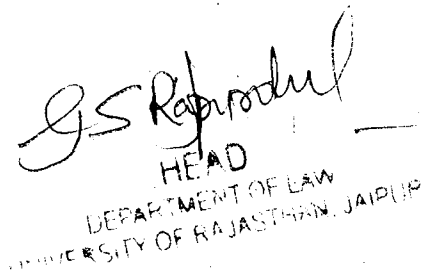 GS Rajpurohit
HEAD
DEPARTMENT OF LAW
UNIVERSITY OF RAJASTHAN, JAIPUR